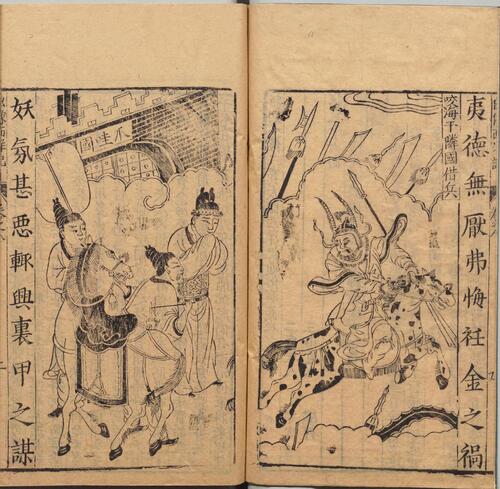 夷德無厭弗悔衽金之禍
咬海干隣國借兵
爪哇國
妖氛甚悪輒興裏甲之謀